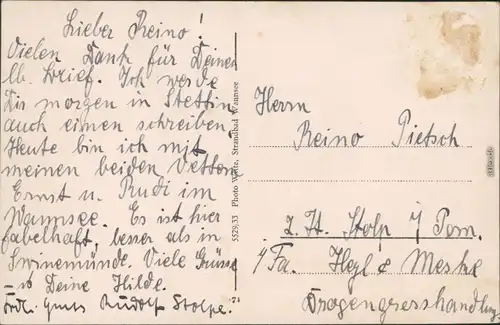 Lieber Reino!
Vielen Dank für Deinen
lb. Brief. Ich werde
Dir morgen in Stettin
auch einen schreiben.
Heute bin ich mit
meinen beiden Vettern
Ernst u. Rudi im
Wannsee. Es ist hier
fabelhaft, besser als in
Swinemünde. Viele Grüsse
Deine Hilde.
Frdl. Gruß Rudolf Stolpe.
5529,33 Photo Strandbad Wannsee
Herrn
Reino Pietsch
z. Zt. Stolp i/Pom.
i/Fa. Heyl & Meske
Drogengrosshandlung